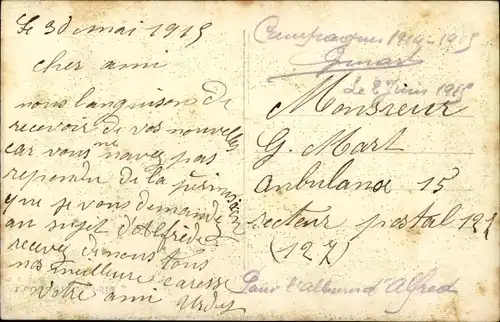 Le 30 mai 1915
cher ami
nous languison de
recevoir de vos nouvelles
car vous ne navez pas
repondu de la
que je vous demandez
au sujet d'Alfrède
recevez de nous tous
nos meilleure caresse
Votre ami
Campagne 1914-1915
Le 2 Juin 1915
Monsieur
G. Mart
anbulance 15
secteur postal 127
(127)
Pour l'album d'Alfred